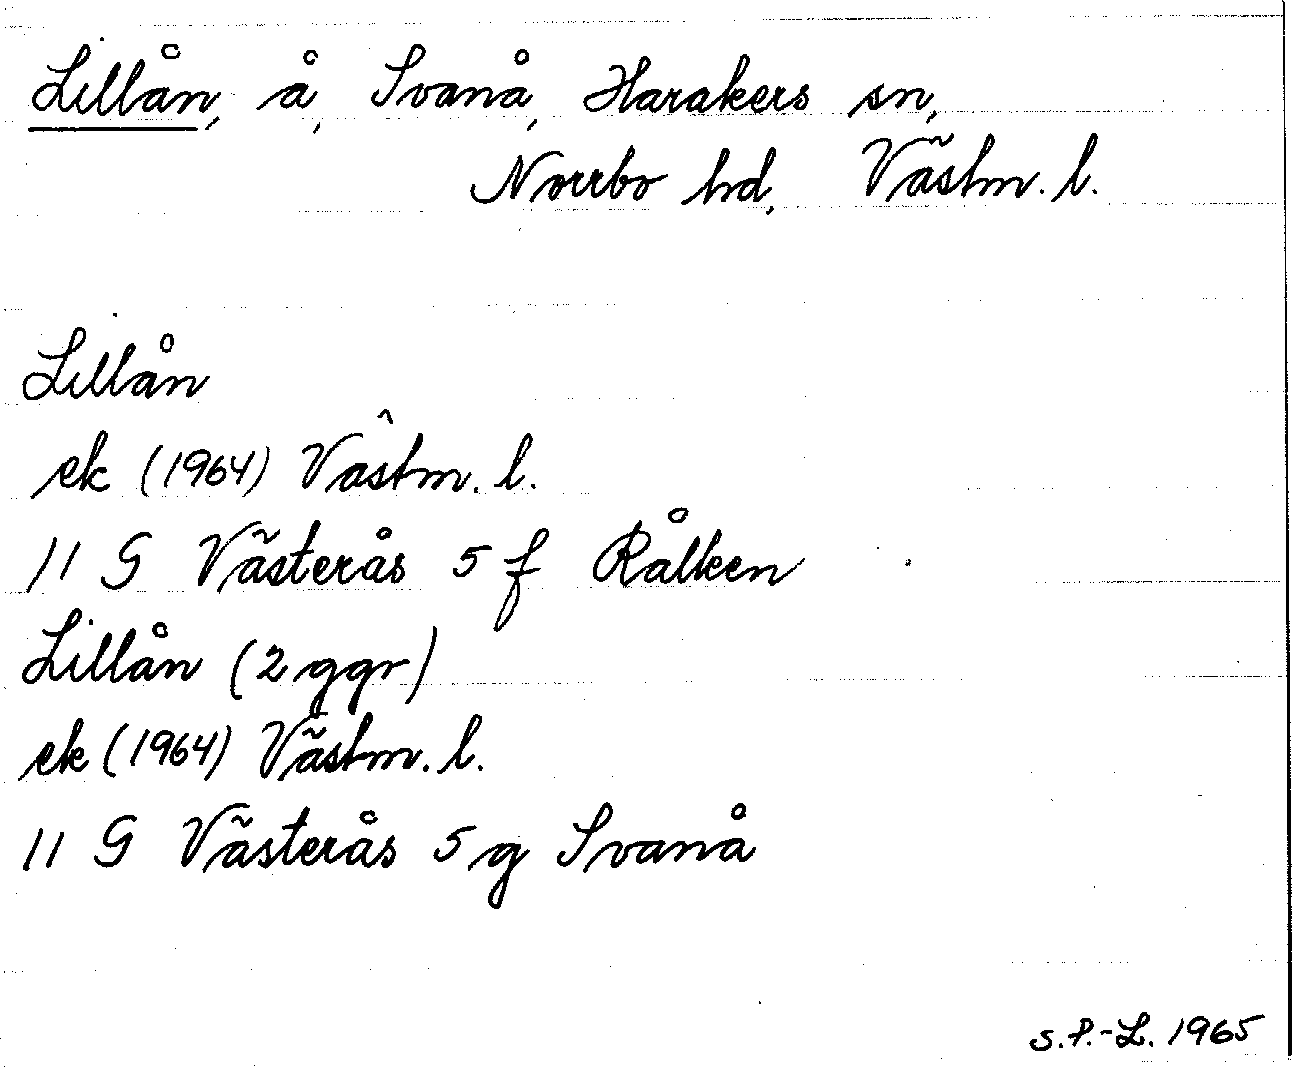 Lillån, å, Svanå, Harakers sn,
Norrbo hd, Västm. l.
Lillån
ek (1964) Västm. l.
11 G Västerås 5 f Rålken
Lillån (2 ggr)
ek (1964) Västm. l.
11 G Västerås 5 g Svanå
S.P.-L. 1965